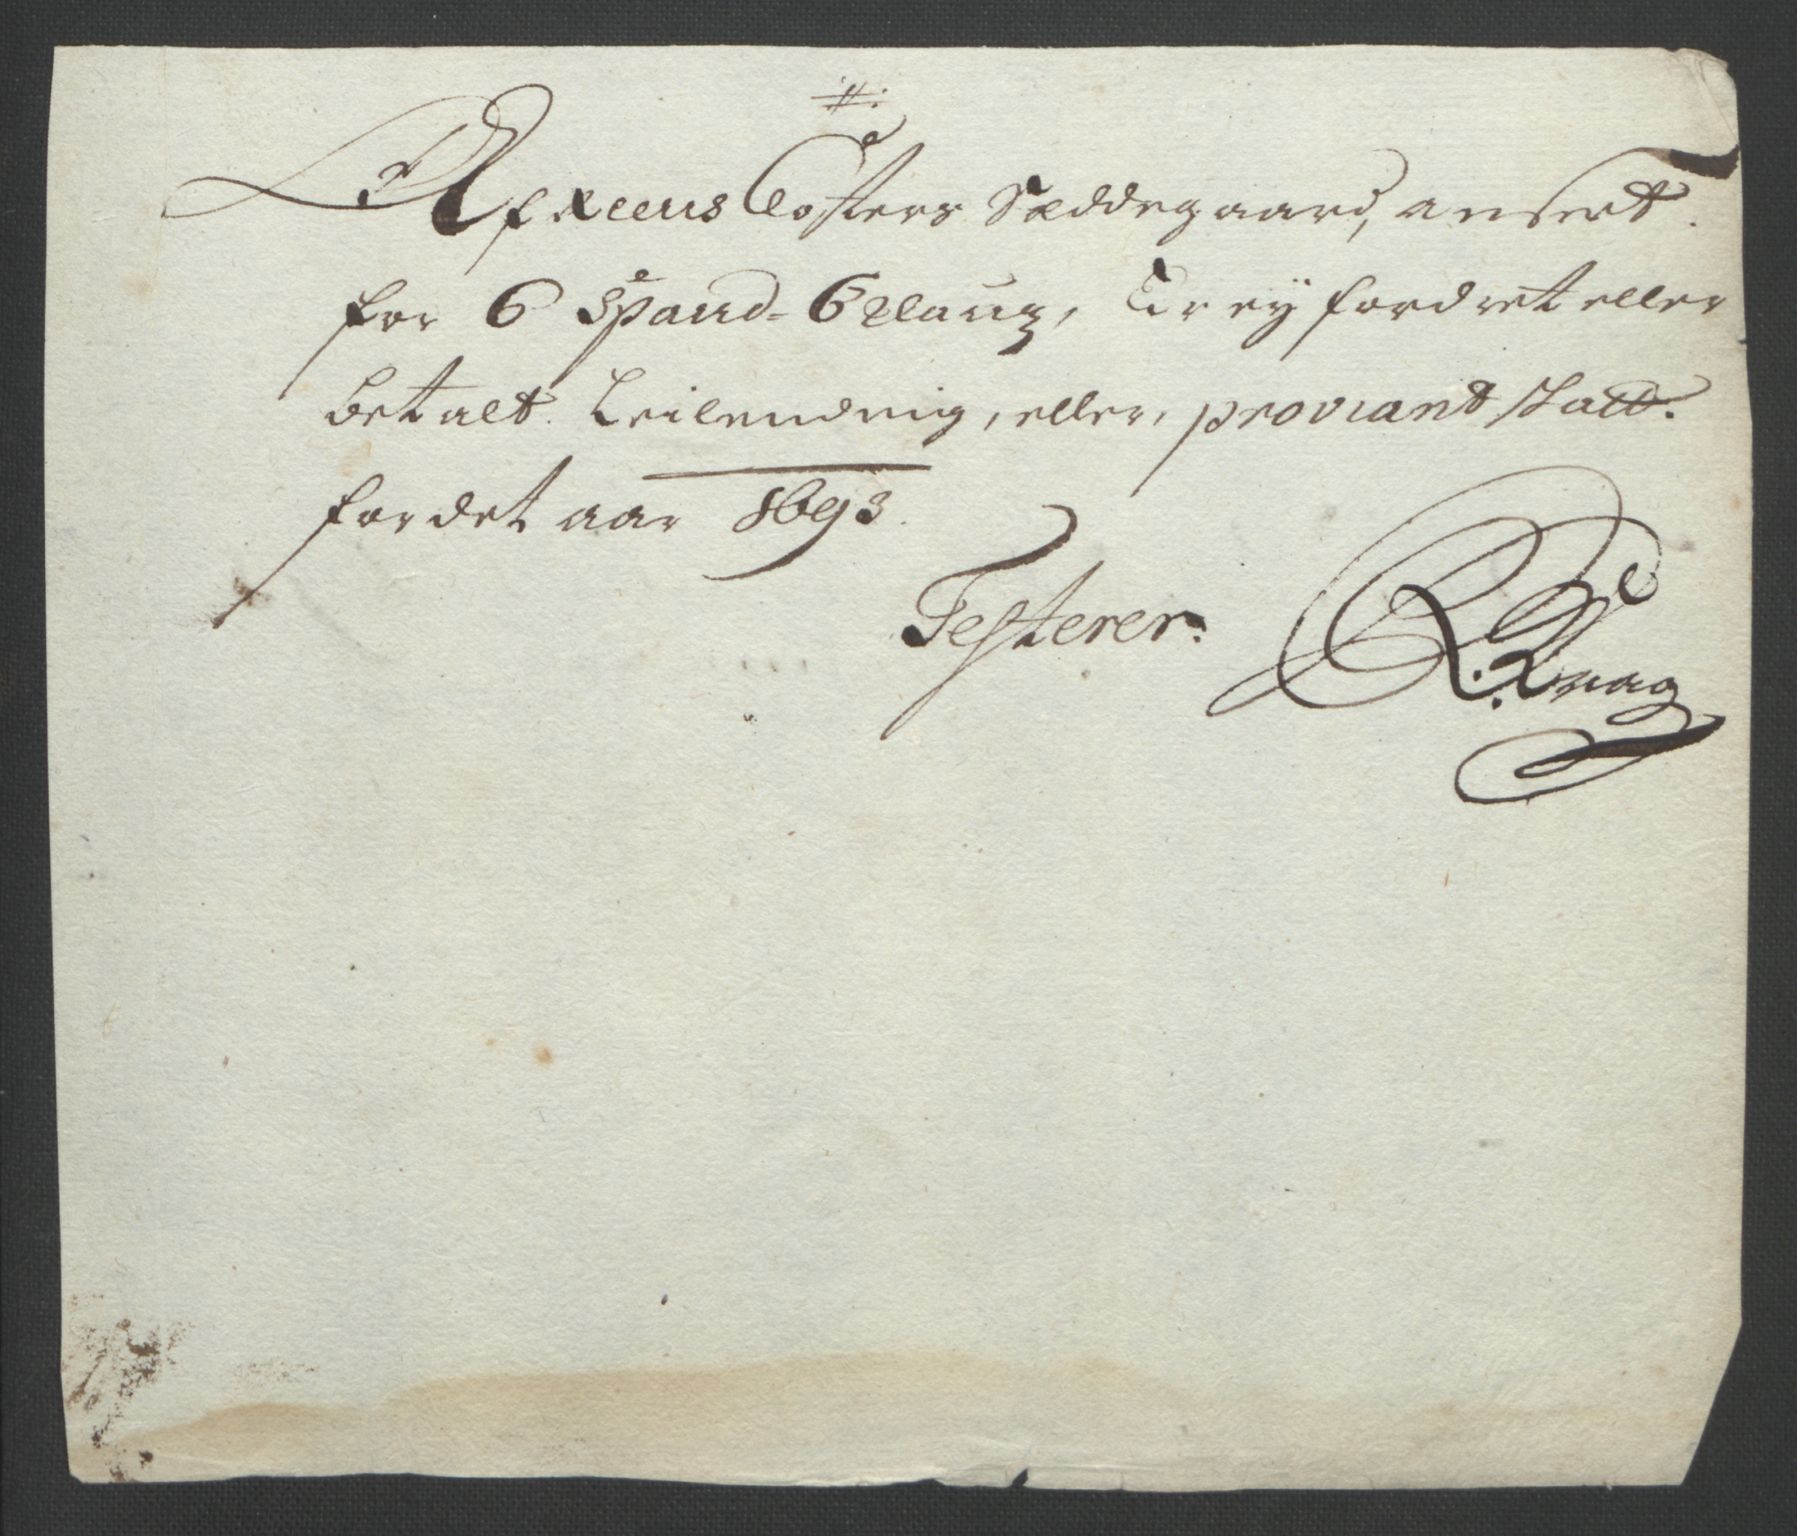 Af Reens Closters Sæddegaard, ansett
for 6 Spand - 6 Klaug, Er ey fordret eller
betalt. Leilending, eller, proviant skatt.
for det aar 1693.
Testerer.
R. Krag